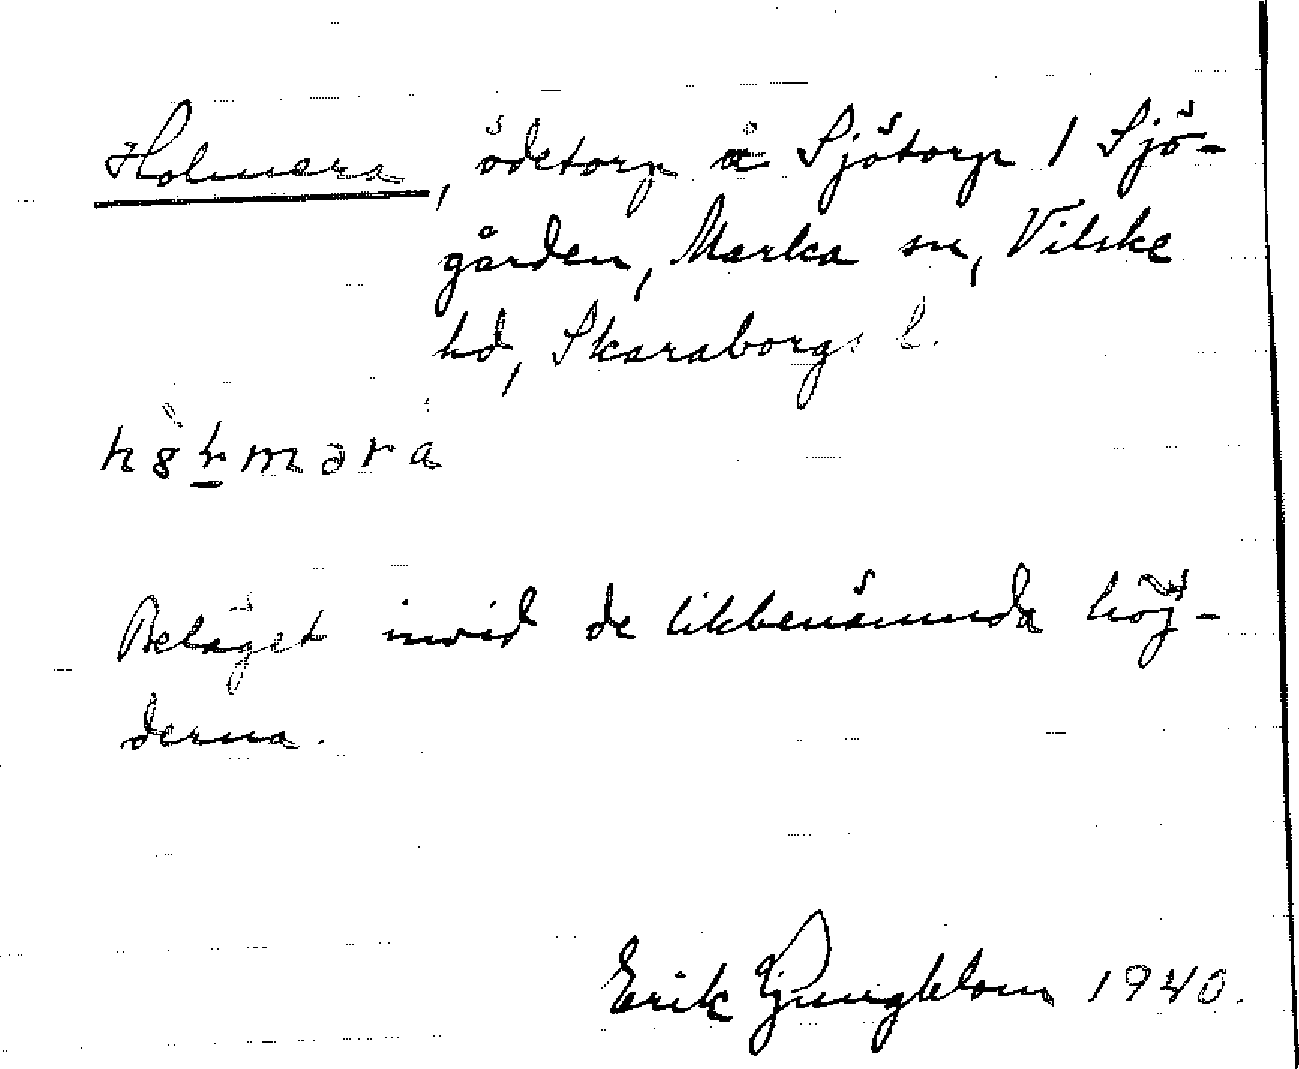 Holmera, ödetorp å Sjötorp 1 Sjö-
gården, Marka sn, Vilske
hd, Skaraborgs l.
Beläget invid de likbenämnda höj-
derna.
Erik Ljungblom 1940.